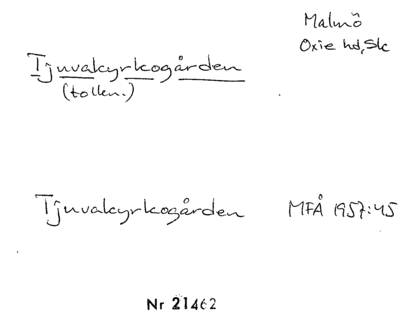 Malmö
Oxie hd, Sk
Tjuvakyrkogården
(tollen.)
Tjuvakyrkogården MFÅ 1957:45
Nr 21462